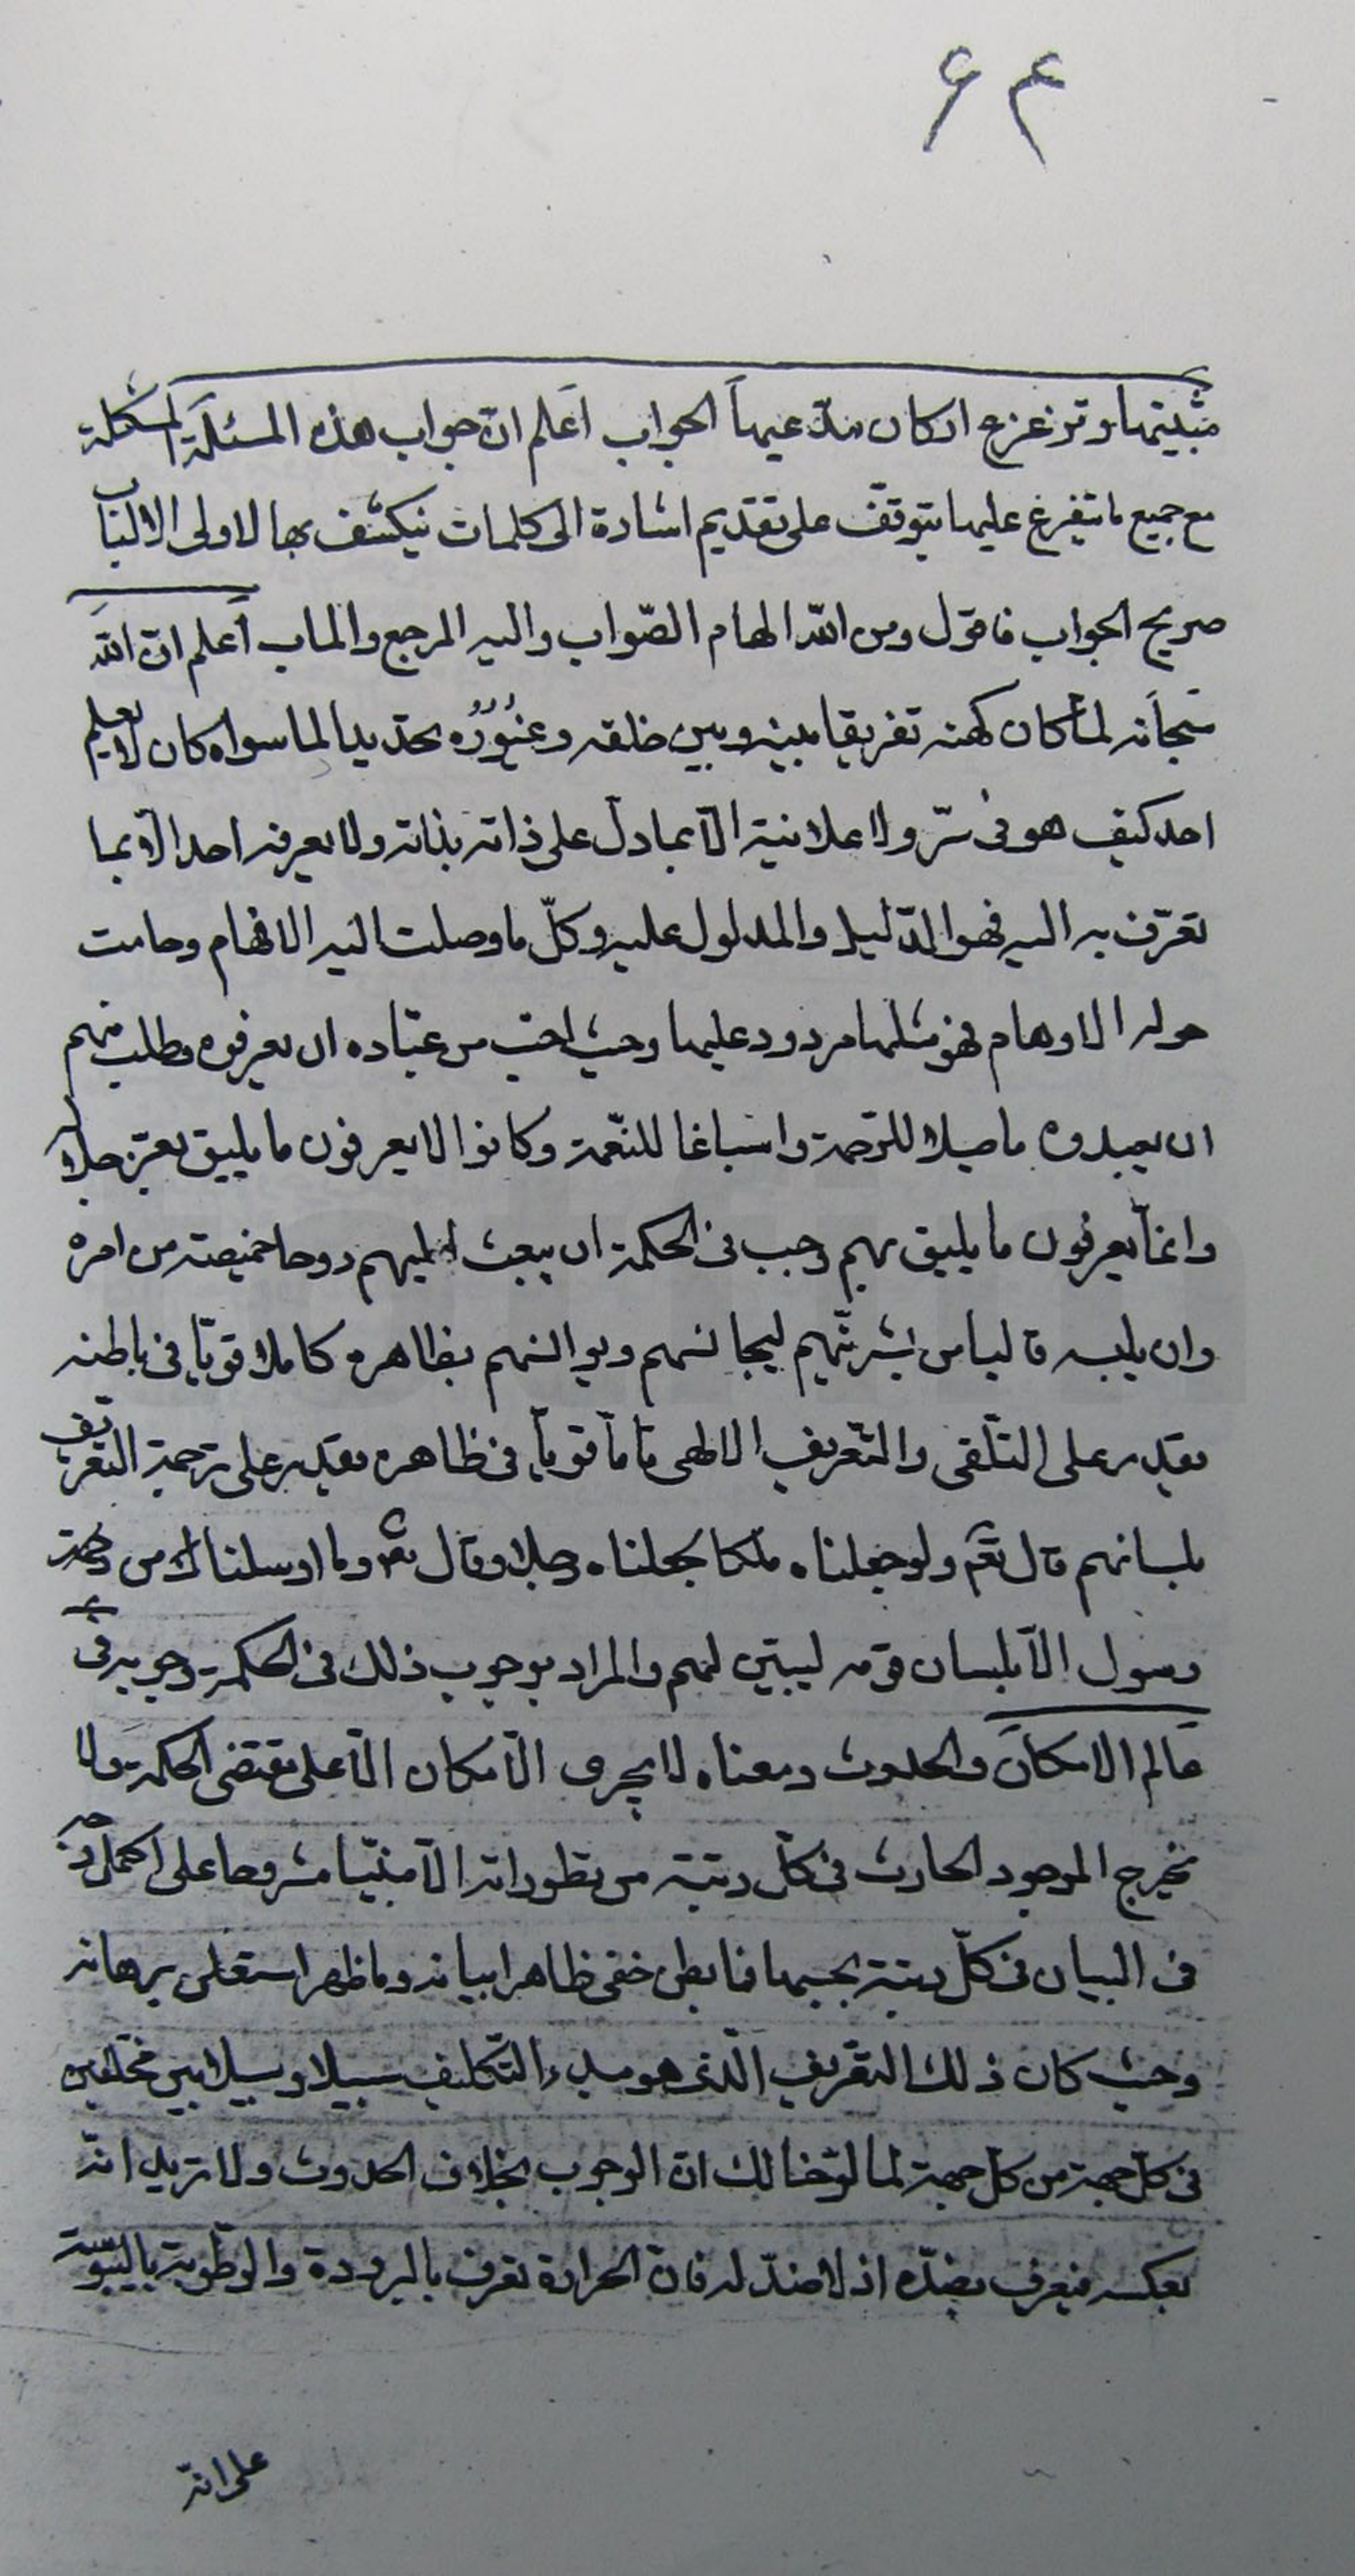 ۶۴
مثبتيها وتزعزع اركان مدّعيها الجواب اعلم انّ جواب هذه المسئلة المشكلة
مع جميع ما يتفرع عليها يتوقّف على تقديم اشارة الى كلمات ينكشف بها لاولى الالباب
صريح الجواب فاقول ومن اللّه الهام الصّواب واليه المرجع والماب اعلم انّ اللّه
سبحانه لمّا كان كنهه تفريقا بينه وبين خلقه وغيُورُه تحديدا لما سواه كان لا يعلم
احد كيف هو فى سرّ ولا علانية الّا بما دلّ على ذاته بذاته ولا يعرفه احد الّا بما
تعرّف به اليه فهو الدّليل والمدلول عليه وكلّ ما وصلت اليه الافهام وحامت
حوله الاوهام فهو مثلها مردود عليها وحيث احبّ من عباده ان يعرفوه وطلب منهم
ان يعبدوه ايصالا للرّحمة واسباغا للنّعمة وكانوا لا يعرفون ما يليق بعزّ جلاله
وانّما يعرفون ما يليق بهم وجب فى الحكمة ان يبعث اليهم روحا خصيصته من امره
وان يلبسه قالبا من بشريّتهم ليجانسهم ويوانسهم بظاهره كاملا قويّا فى باطنه
يقدر على التلّقى والتّعريف الالهى تامّا قويّا فى ظاهره يقدر على ترجمة التعريف
بلسانهم قال تعّم ولو جعلناه ملكا لجعلناه رجلا وقال تعم وما ارسلنا من
رسول الّا بلسان قومه ليبيّن لهم والمراد بوجوب ذلك فى الحكمة وجوبه فى
عالم الامكان والحدوث ومعناه لا يجرى الامكان الّا على مقتضى الحكمة ولا
يخرج الموجود الحادث فى كلّ رتبة من تطوراته الّا مبنيّا مشروحا على اكمل وجه
فى البيان فى كلّ رتبة بحسبها فما بطن خفى ظاهرا بيانه وما ظهر استعلى برهانه
وحيث كان ذلك التعريف الّذى هو مبدء التّكليف سبيلا وسيلا بين مختلفين
فى كلّ جهة من كلّ جهة لما لوّحنا لك انّ الوجوب بخلاف الحدوث ولا نريد انّه
بعكسه فيعرف بضدّه اذ لا ضدّ له فانّ الحرارة تعرف بالبرودة والرطوبة باليبوسة
على انّه